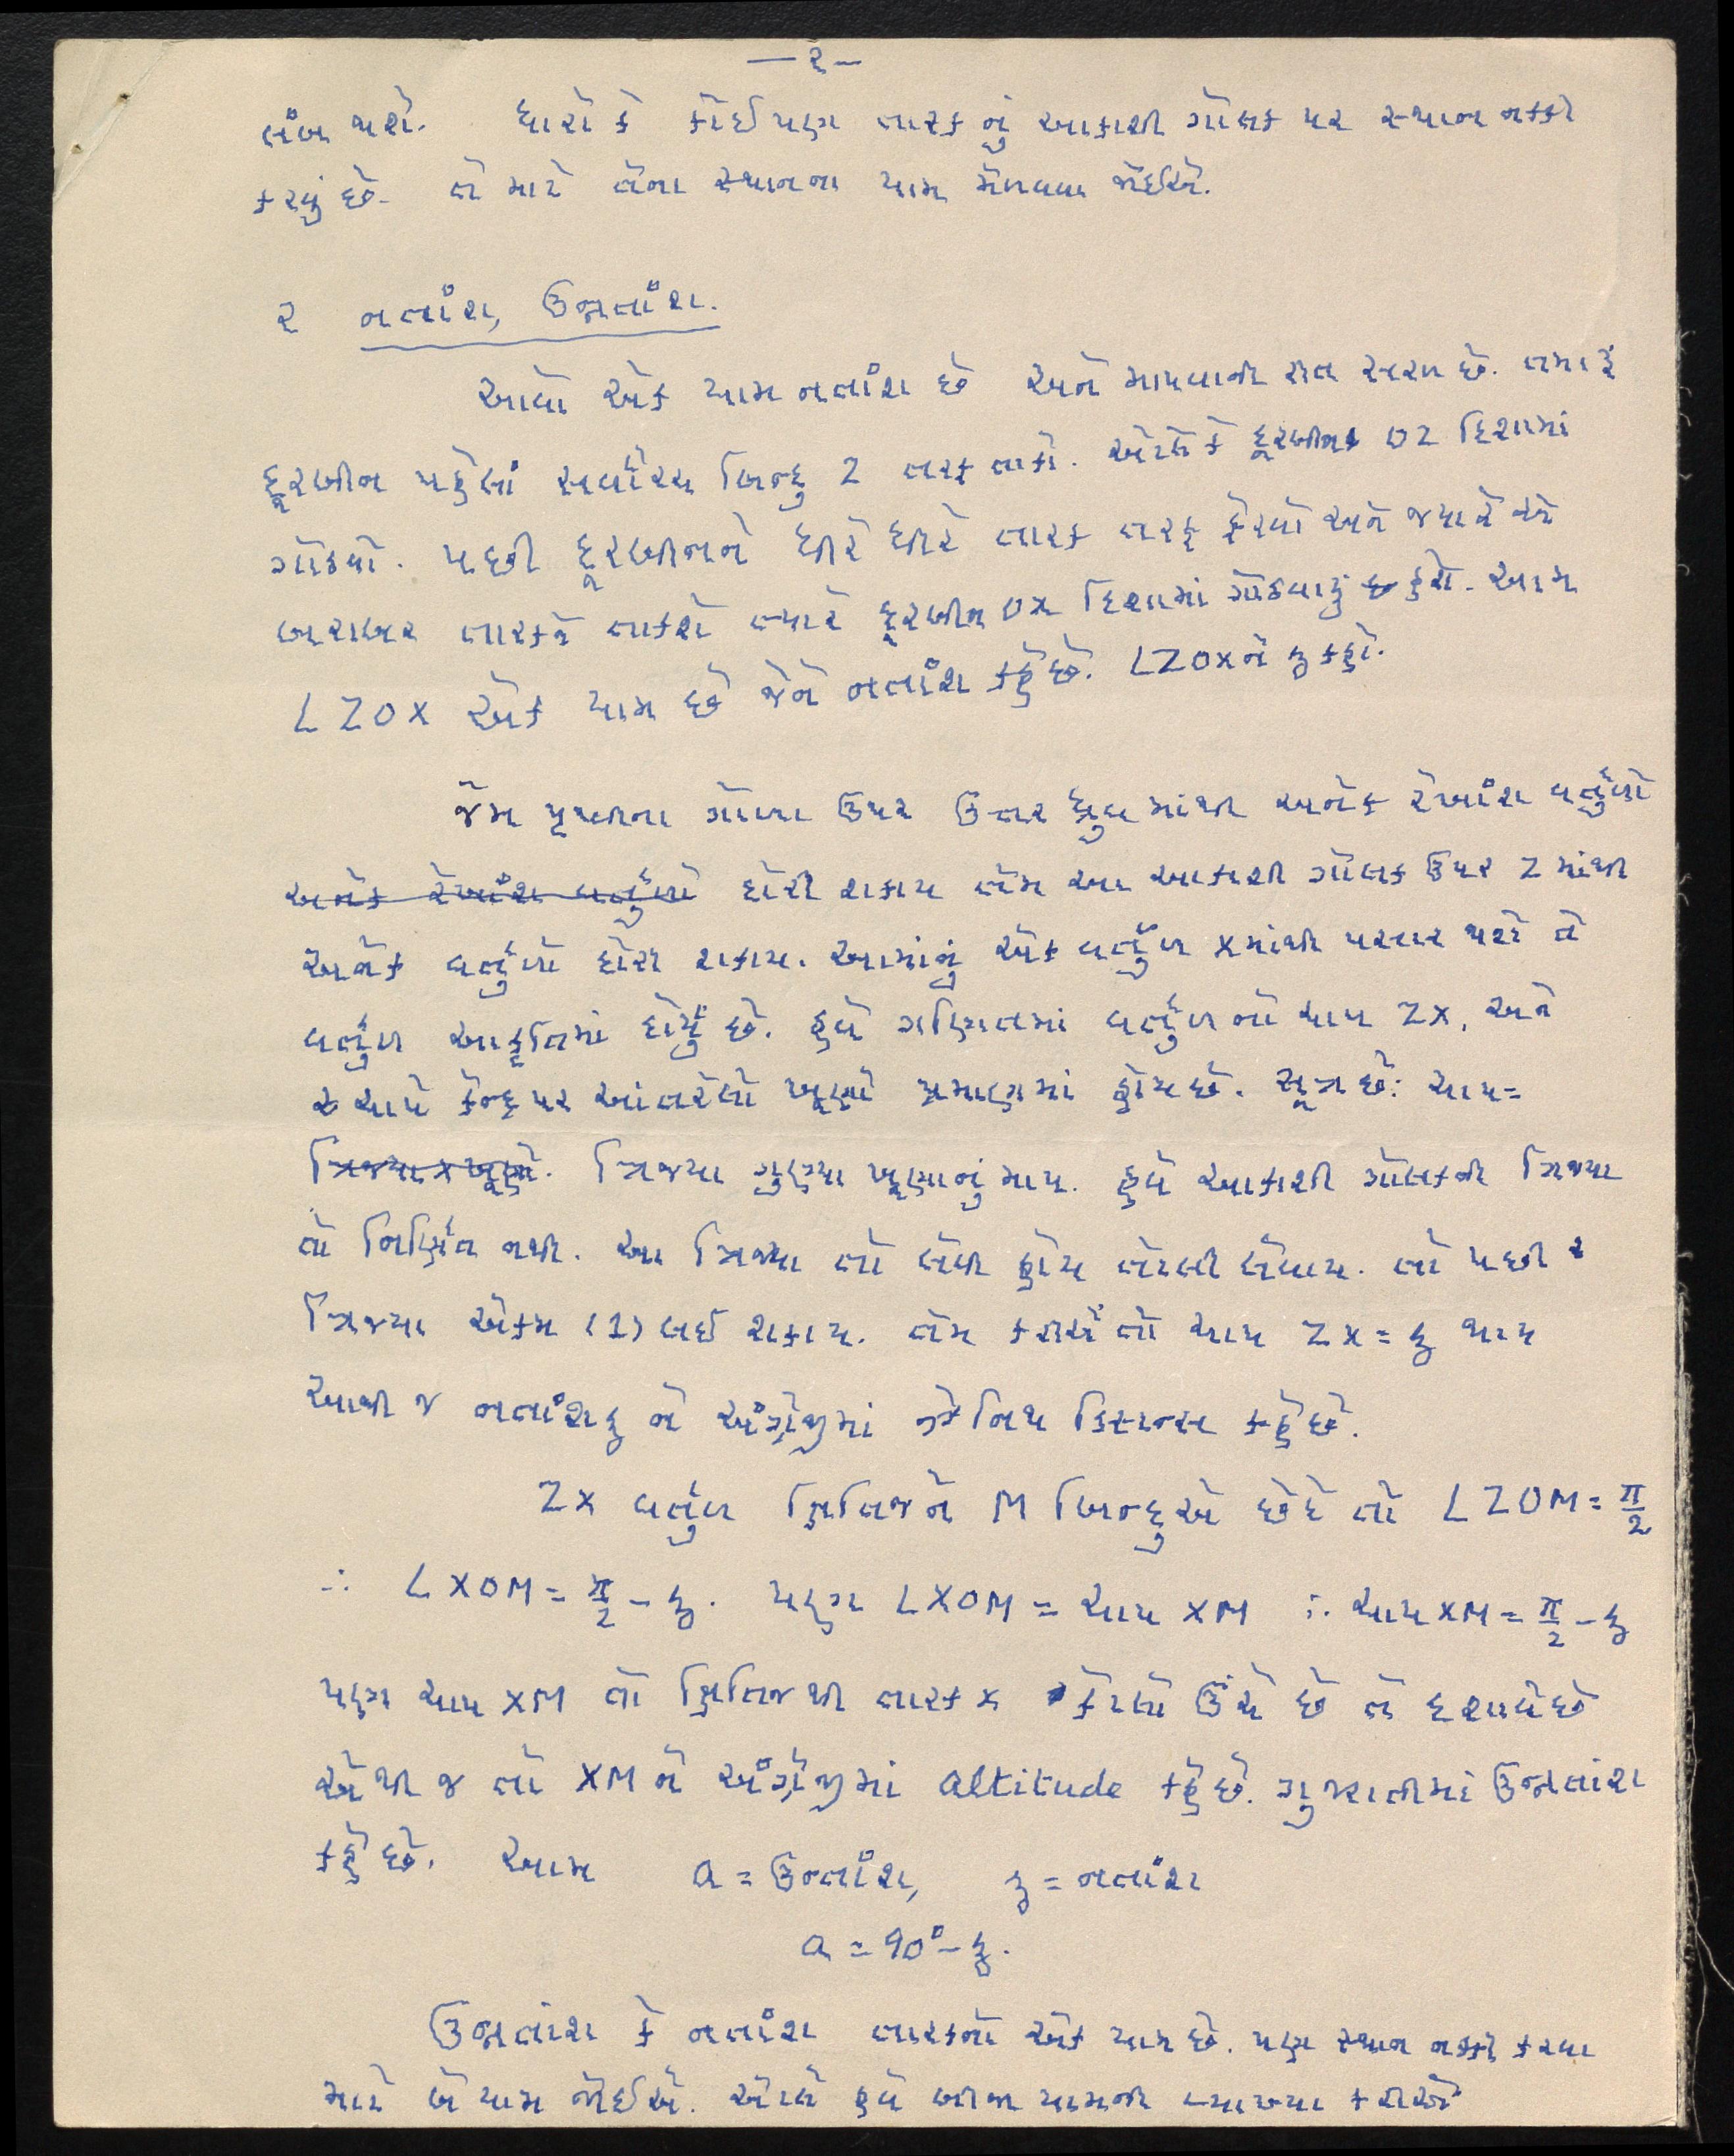 —૨—
તેમ થશે. ધારો કે કોઈપણ તારકનું આકાશી ગોલક પર સ્થાન નક્કી
કરવું છે. તે માટે તેના સ્થાનના યામ મેળવવા જોઈએ.
૨ નતાંશ, ઉન્નતાંશ.
આવો એક યામ નતાંશ છે અને માપવાની રીત સરળ છે. તમારું
દૂરબીન પહેલાં સર્વોચ્ચ બિન્દુ Z તરફ તાકો. એટલે કે દૂરબીન OZ દિશામાં
ગોઠવો. પછી દૂરબીનને ધીરે ધીરે તારક તરફ ફેરવો અને જ્યારે એ
બરાબર તારકને તાકશે ત્યારે દૂરબીન OX દિશામાં ગોઠવાયું હશે. આમ
∠ZOX એક યામ છે જેને નતાંશ કહે છે. ∠ZOX ને ʒ કહો.
જેમ પૃથ્વીના ગોળા ઉપર ઉત્તર ધ્રુવમાંથી અનેક રેખાંશ વર્તુળો
અનેક રેખાંશ વર્તુળો દોરી શકાય તેમ આ આકાશી ગોલક ઉપર Z માંથી
અનેક વર્તુળો દોરી શકાય. આમાંનું એક વર્તુળ X માંથી પસાર થશે તે
વર્તુળ આકૃતિમાં દોર્યું છે. હવે ગણિતમાં વર્તુળનો ચાપ ZX, અને
એ ચાપે કેન્દ્ર પર આંતરેલો ખૂણો પ્રમાણમાં હોય છે. સૂત્ર છે: ચાપ=
ત્રિજ્યા x ખૂણો. ત્રિજ્યા ગુણ્યા ખૂણાનું માપ. હવે આકાશી ગોલકની ત્રિજ્યા
તો નિશ્ચિત નથી. આ ત્રિજ્યા તો જેવી હોય તેટલી લેવાય. તો પછી
ત્રિજ્યા એકમ (1) લઈ શકાય. તેમ કરીએ તો ચાપ ZX = ʒ થાય
આથી જ નતાંશ ʒ ને અંગ્રેજીમાં ઝેનિથ ડિસ્ટન્સ કહે છે.
ZX વર્તુળ ક્ષિતિજને M બિન્દુએ છેદે તો ∠ZOM = π/2
∴ ∠XOM = π/2 - ʒ. પણ ∠XOM = ચાપ XM ∴ ચાપ XM = π/2 - ʒ
પણ ચાપ XM તો ક્ષિતિજથી તારક X કેટલો ઉંચો છે તે દર્શાવે છે
એથી જ તો XM ને અંગ્રેજીમાં altitude કહે છે. ગુજરાતીમાં ઉન્નતાંશ
કહે છે. આમ a = ઉન્નતાંશ, ʒ = નતાંશ
a = 90° - ʒ.
ઉન્નતાંશ કે નતાંશ તારકનો એક યામ છે. પણ સ્થાન નક્કી કરવા
માટે બે યામ જોઈએ. એટલે હવે બીજા યામની વ્યાખ્યા કરીએ